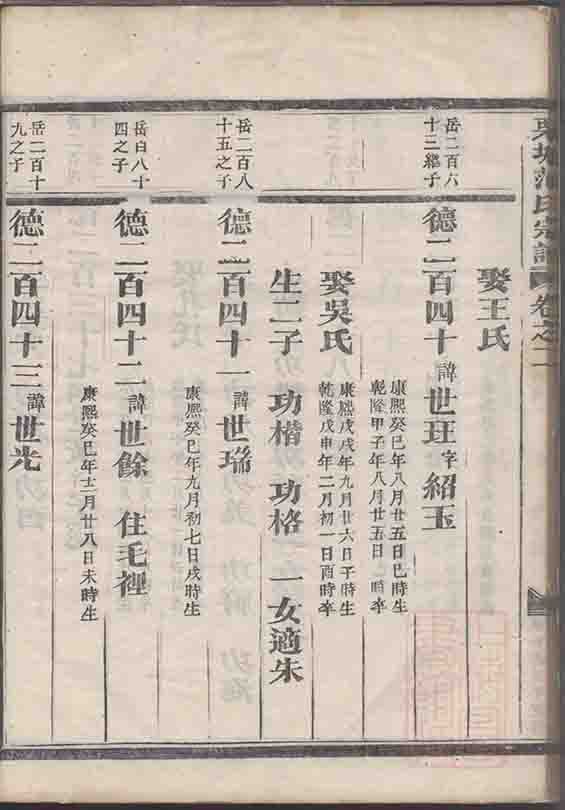 范氏宗譜 卷之二
娶王氏
岳二百六
十三繼子
德二百四十 諱世玨字紹玉
康熙癸巳年八月廿五日巳時生
乾隆甲子年八月廿五日 時卒
娶吳氏
康熙戊戌年九月廿六日子時生
乾隆戊申年二月初一日酉時卒
生二子 功楷 功格 一女適朱
岳二百八
十五之子
德二百四十一 諱世瑞
康熙癸巳年九月初七日戌時生
岳白八十
四之子
德二百四十二 諱世餘 住毛裡
康熙癸巳年十二月廿八日未時生
岳二百十
九之子
德二百四十三 諱世光